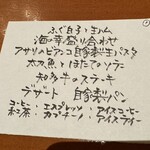 海の幸盛り合わせ
アサリのビアンコ自家製生パスタ
太刀魚とほたてのソテー
知多牛のステーキ
デザート 自家製パン
コーヒー・エスプレッソ・アイスコーヒー
紅茶・カプチーノ・アイスティー